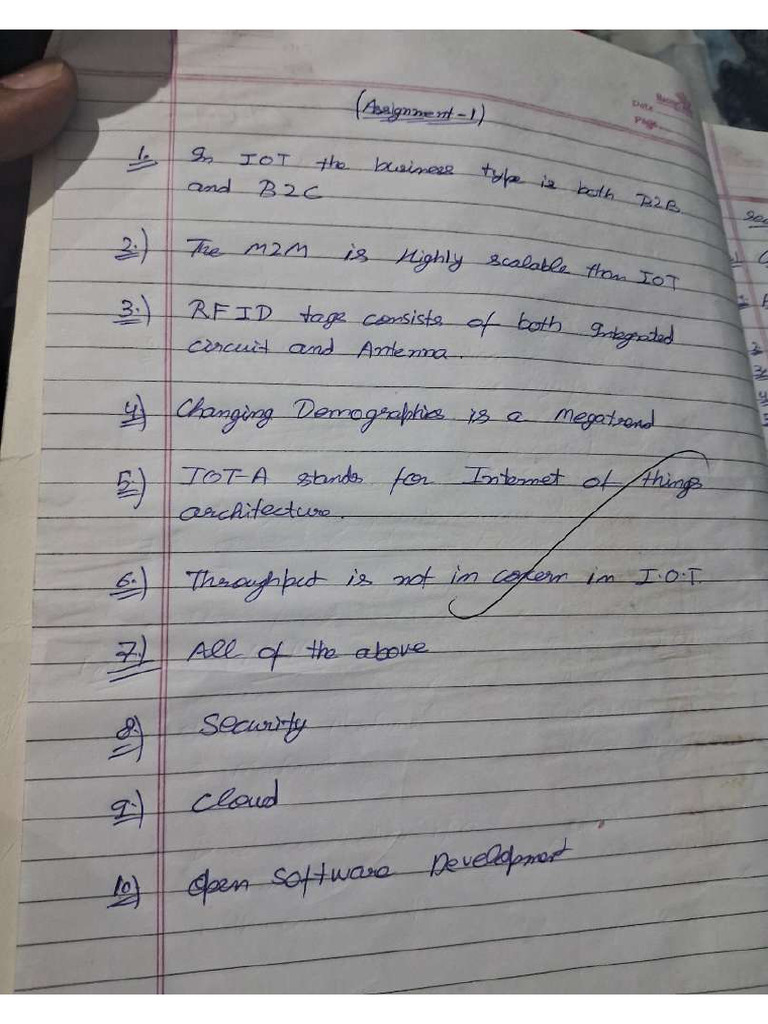 (Assignment-1)
Date
Page
1. In IOT the business type is both B2B
and B2C
2.) The M2M is Highly scalable than IOT
3.) RFID tags consists of both Integrated
circuit and Antenna.
4) Changing Demographics is a megatrend
5.) IOT-A stands for Internet of things
architecture.
6.) Throughput is not in cocern in I.O.T.
7.) All of the above
8.) Security
9.) Cloud
10) Open Software Development